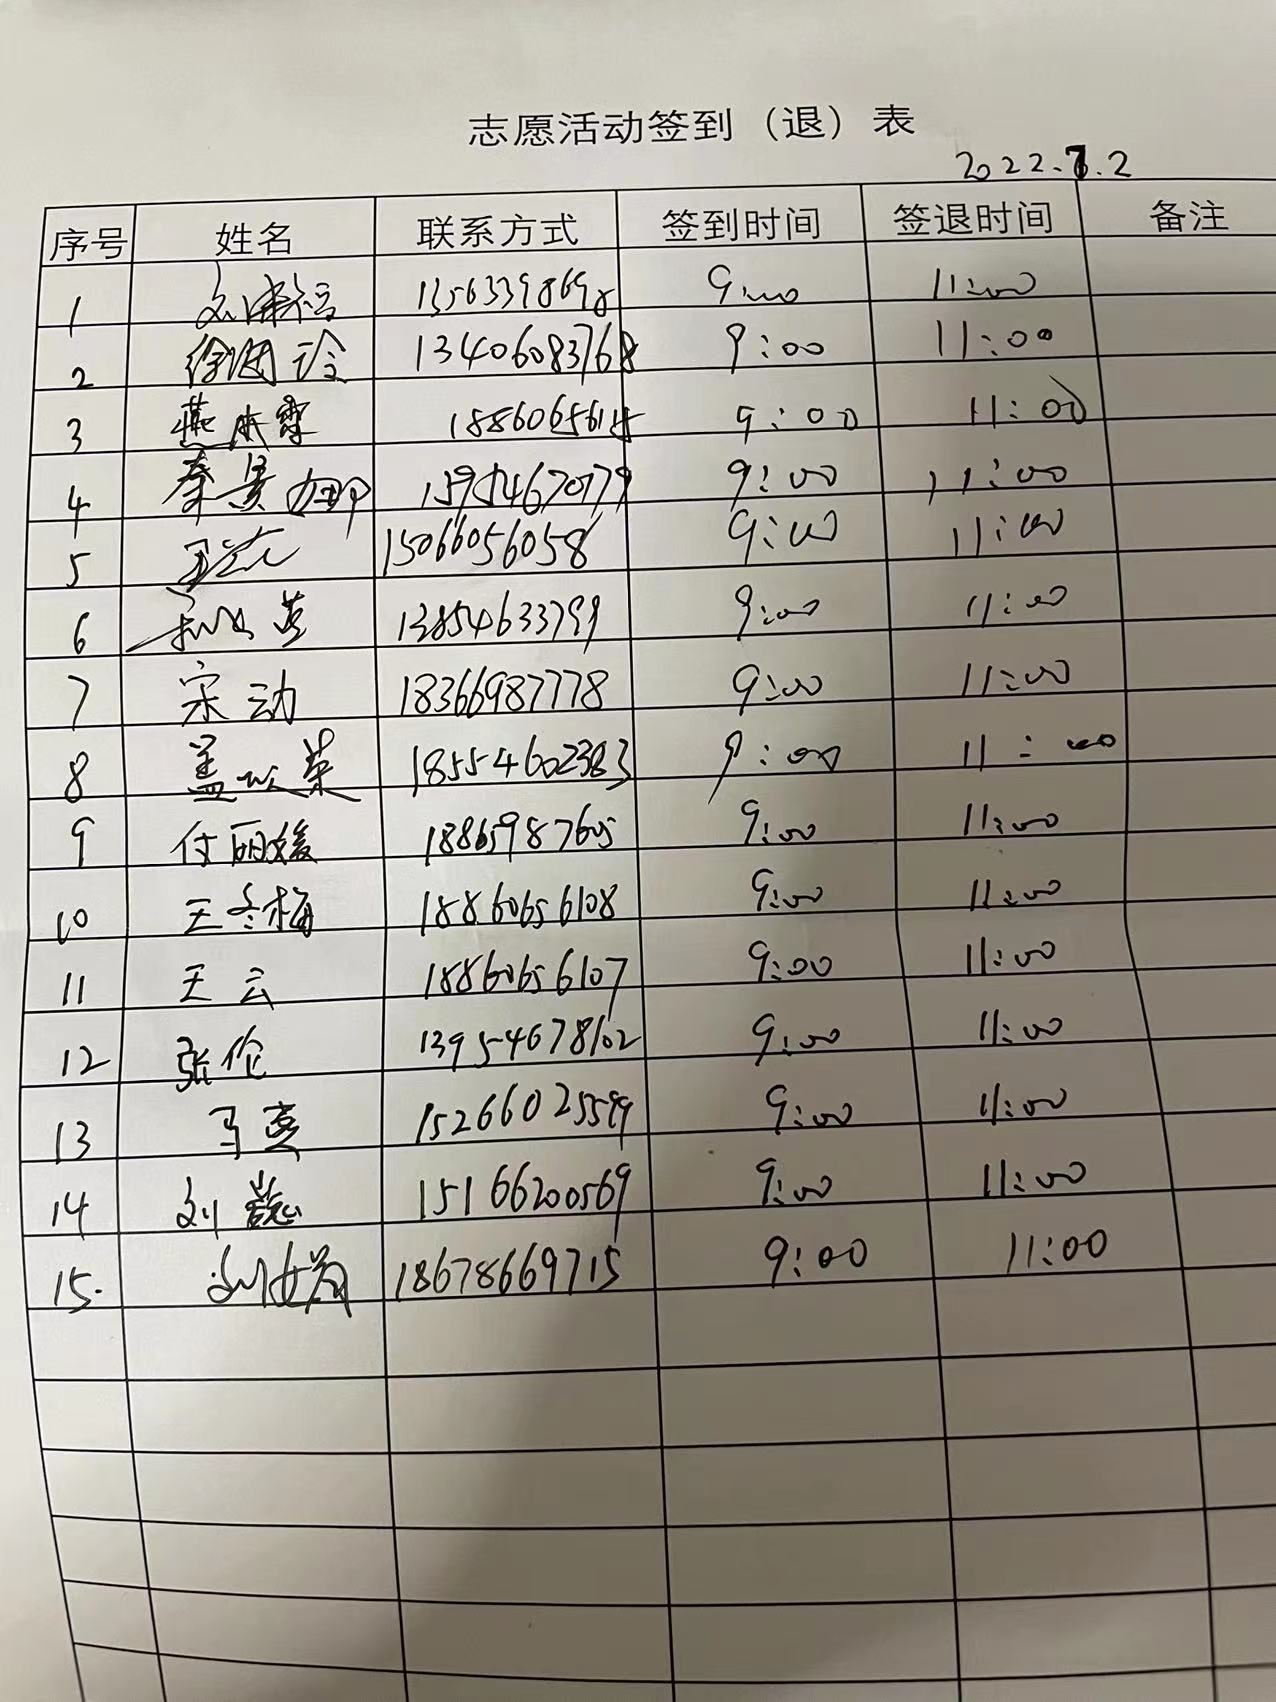 志愿活动签到（退）表
2022.7.2
序号 姓名 联系方式 签到时间 签退时间 备注
1 13563398698 9:00 11:00
2 13406083768 9:00 11:00
3 9:00 11:00
4 秦景 9:00 11:00
5 15066056058 9:00 11:00
6 13854633799 9:00 11:00
7 宋动 18366987778 9:00 11:00
8 盖 18554602383 9:00 11:00
9 付丽媛 18865987605 9:00 11:00
10 王冬梅 18860656108 9:00 11:00
11 王云 18860656107 9:00 11:00
12 张伦 13954678102 9:00 11:00
13 马 15266025599 9:00 11:00
14 刘 15166200569 9:00 11:00
15. 刘 18678669715 9:00 11:00